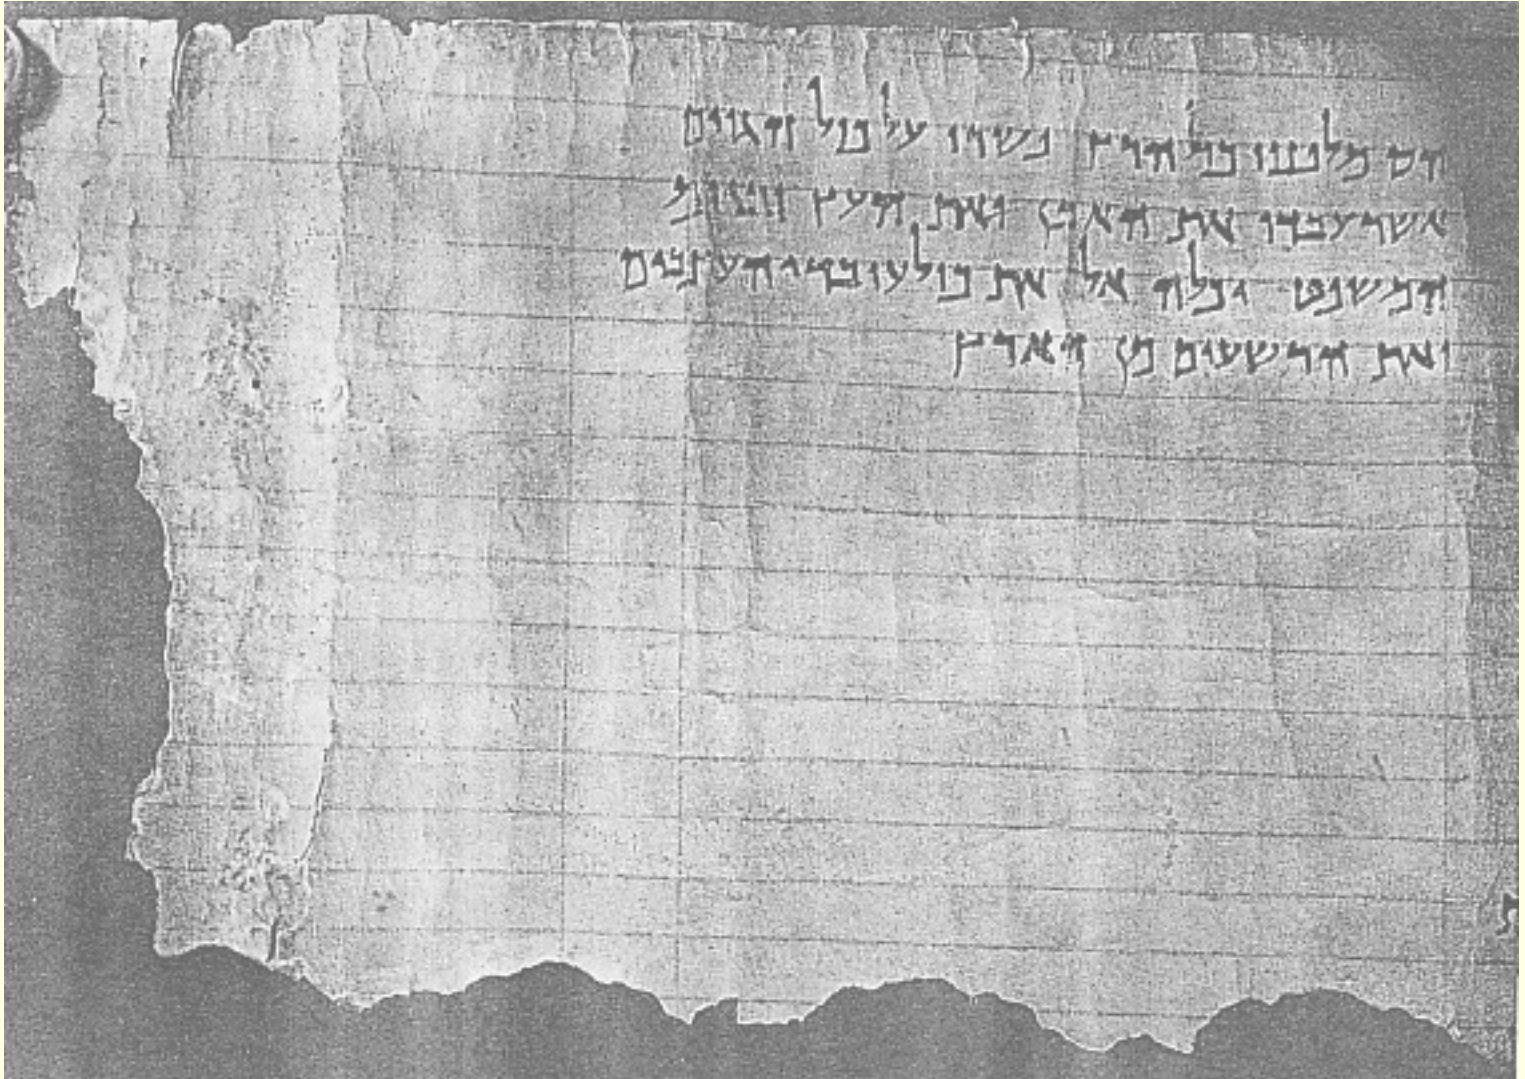 הס מלפניו כל הרץ פשרו על כול הגוים
אשר עבדו את האבן ואת העץ וביום
המשפט יכלה אל את כול עובדי העצבים
ואת הרשעים מן הארץ